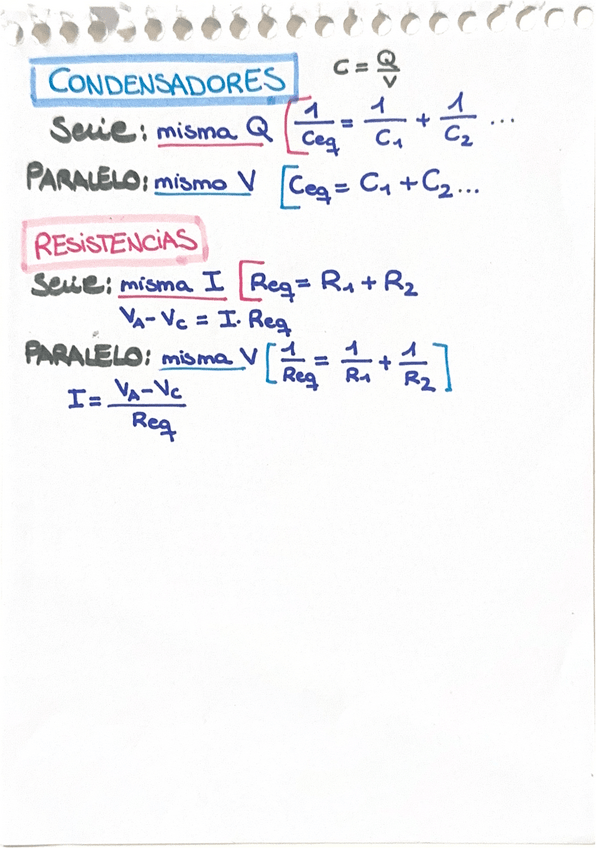 CONDENSADORES C = Q/V
Serie: misma Q [ 1/Ceq = 1/C1 + 1/C2 ...
PARALELO: mismo V [ Ceq = C1 + C2...
RESISTENCIAS
Serie: misma I [ Req = R1 + R2
VA - VC = I · Req
PARALELO: misma V [ 1/Req = 1/R1 + 1/R2 ]
I = VA - VC / Req